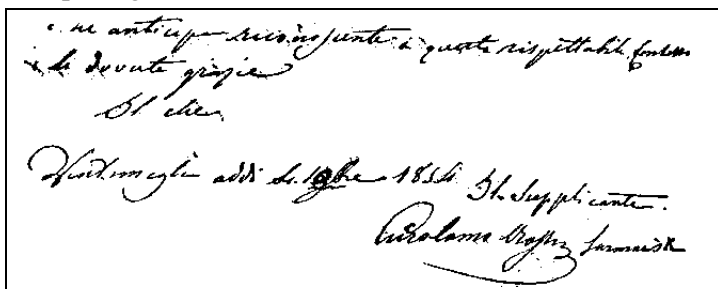 e ne anticipa riconoscente a questo rispettabile
le dovute grazie
Il che
Ventimiglia addì 10bre 1854 Il Supplicante.
Girolamo